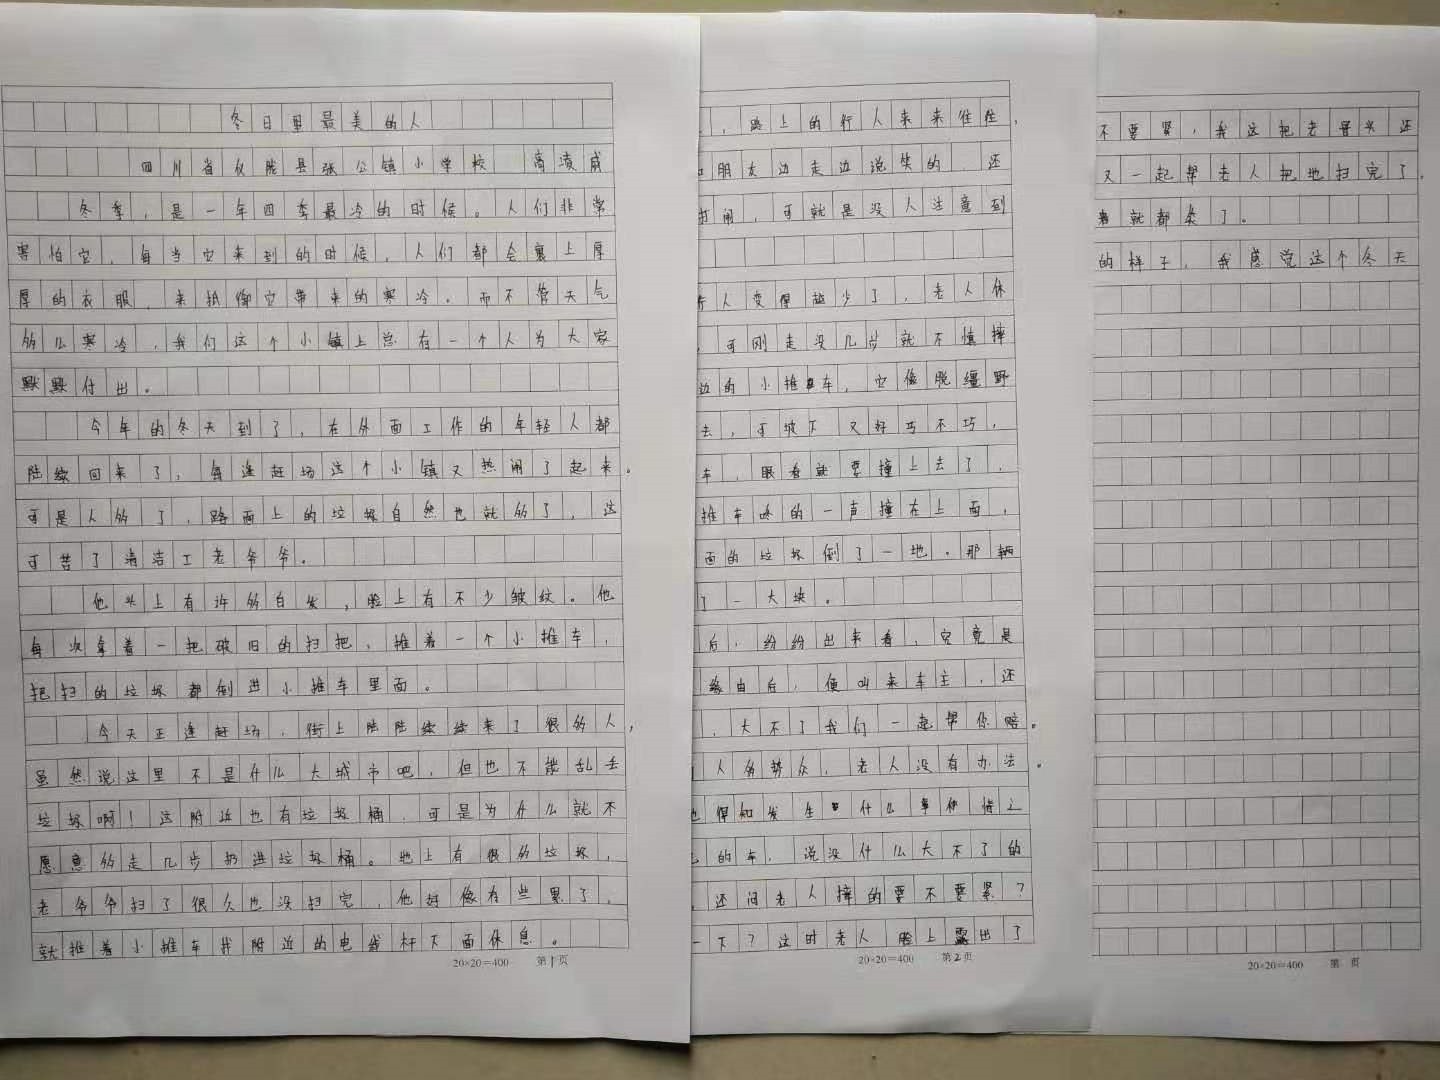 冬日里最美的人
四川省仪陇县张公镇小学校 高凌威
冬季，是一年四季最冷的时候。人们非常
害怕它，每当它来到的时候，人们都会裹上厚
厚的衣服，来抵御它带来的寒冷。而不管天气
多么寒冷，我们这个小镇上总有一个人为大家
默默付出。
今年的冬天到了，在外面工作的年轻人都
陆续回来了，每逢赶场这个小镇又热闹了起来。
可是人多了，路面上的垃圾自然也就多了，这
可苦了清洁工老爷爷。
他头上有许多白发，脸上有不少皱纹。他
每次拿着一把破旧的扫把，推着一个小推车，
把扫的垃圾都倒进小推车里面。
今天正逢赶场，街上陆陆续续来了很多人，
虽然说这里不是什么大城市吧，但也不能乱丢
垃圾啊！这附近也有垃圾桶，可是为什么就不
愿意多走几步扔进垃圾桶。地上有很多垃圾，
老爷爷扫了很久也没扫完，他好像有些累了，
就推着小推车找附近的电线杆下面休息。
20×20=400 第1页
，路上的行人来来往往，
朋友边走边说笑的，还
打闹，可就是没人注意到
行人变得越少了，老人休
，可刚走没几步就不慎摔
边的小推车，它像脱缰野
去，下坡下又好巧不巧，
车，眼看就要撞上去了，
推车咚的一声撞在上面，
面的垃圾倒了一地。那辆
了一大块。
后，纷纷出来看，究竟是
缘由后，便叫来车主，还
，大不了我们一起帮你赔。
人多势众，老人没有办法。
他得知发生什么事和情之
的车，说没什么大不了的
，还问老人摔的要不要紧？
一下？这时老人脸上露出了
20×20=400 第2页
不要紧，我这把老骨头还
又一起帮老人把地扫完了，
着就都柔了。
的样子，我感觉这个冬天
20×20=400 第 页